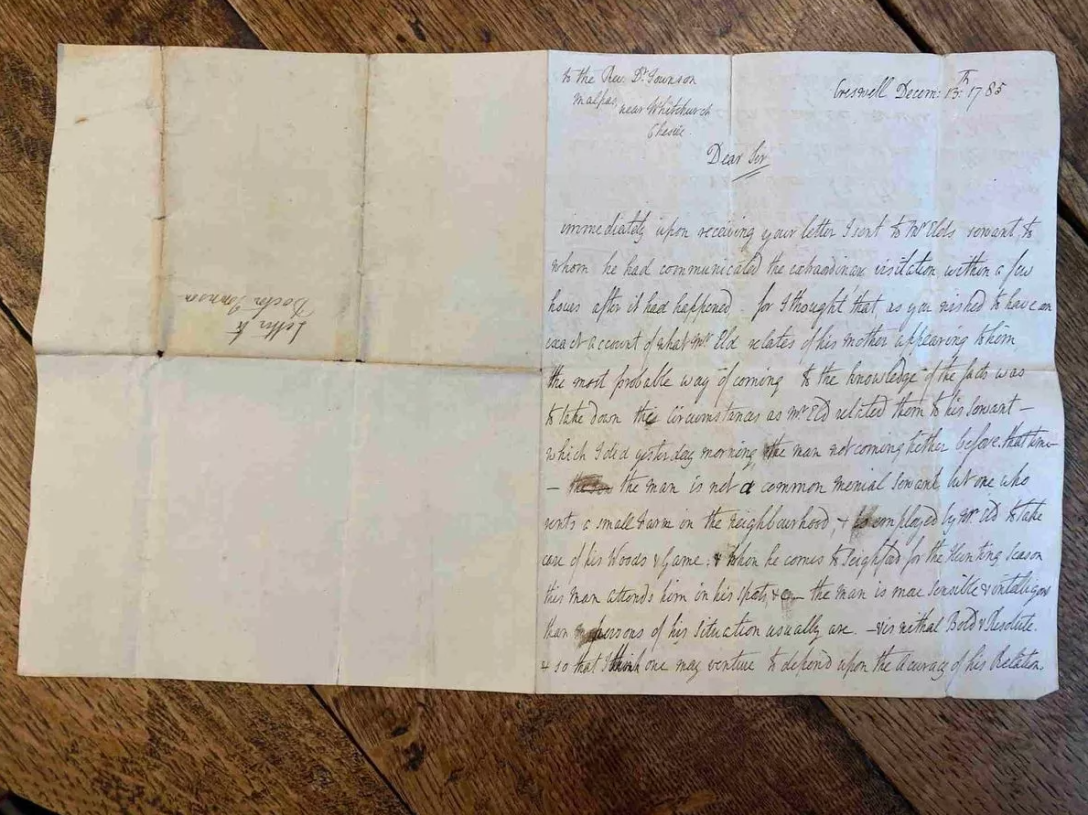 to the Rev. Dr. Townson
Malpas, near Whitchurch
Chesire
Creswell Decem: 13.th 1785
Dear Sir
immediately upon receiving your letter I sent to Mr Elds servant to
whom he had communicated the extraordinary visitation within a few
hours after it had happened. for I thought that, as you wished to have an
exact account of what Mr Eld relates of his mother appearing to him
the most probable way of coming to the knowledge of the facts was
to take down the circumstances as Mr Eld related them to his servant –
which I did yesterday morning the man not coming hither before that time
– the man is not a common menial servant but one who
rents a small Farm in the neighbourhood, & is employed by Mr. Eld to take
care of his Woods & Game. & when he comes to Seighford for the Hunting Season
this man attends him in his Sports, & – the man is more Sensible & intelligent
than persons of his Situation usually are – & is withal Bold & Resolute.
& so that I think one may venture to depend upon the Accuracy of his Relation
Letter to
Doctor Townson